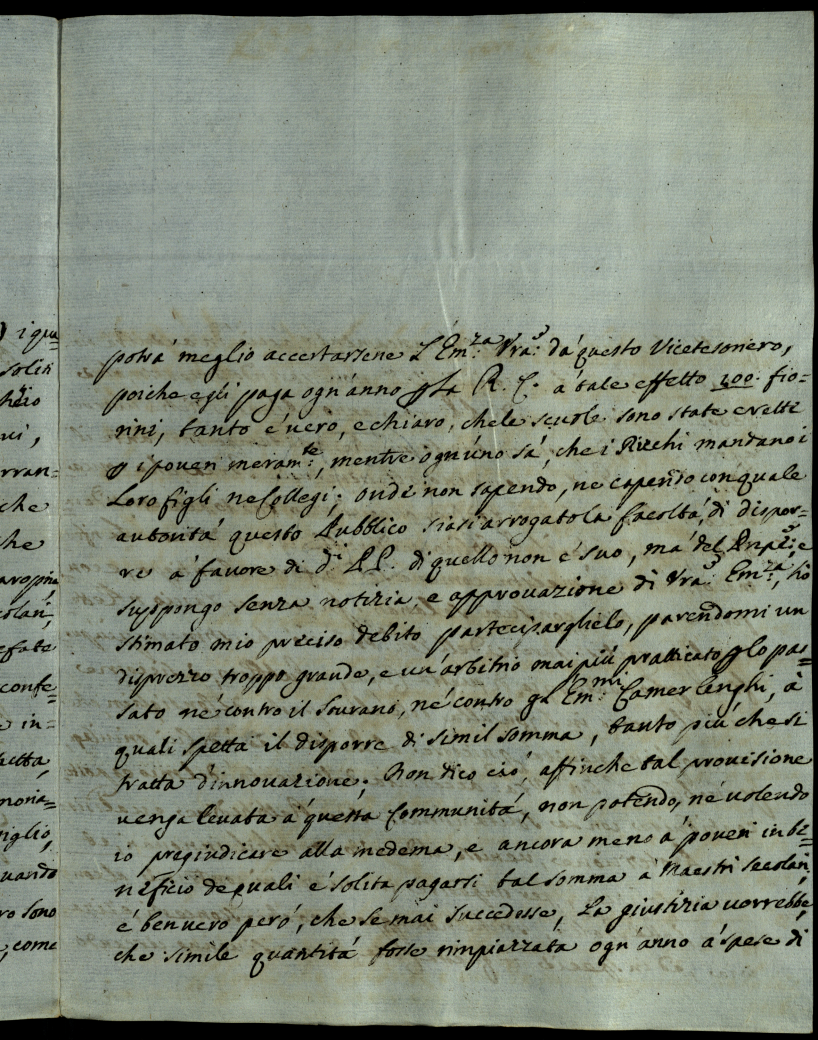 potrà meglio accertarsene L'Em:za Vra: da questo Vicetesoriero,
poiche egli paga ogn'anno p La R. C. à tale effetto 200: fio=
rini, tanto è vero, e chiaro, che le scuole sono state erette
p i poveri meram:te, mentre ogn'uno sà, che i Ricchi mandano i
Loro figli ne Collegi; onde non sapendo, ne capendo con quale
autorità questo Pubblico siasi arrogato la facoltà, di dispor=
re à favore di d:i PP. di quello non è suo, mà del Pnpe:, e
suppongo senza notizia, e approvazione di Vra: Em:za, hò
stimato mio preciso debito parteciparglielo, parendomi un
disprezzo troppo grande, e un'arbitrio mai più pratticato p lo pas=
sato nè contro il Sovrano, nè contro gl'Em:mi Camerlenghi, à
quali spetta il disporre di simil somma, tanto più che si
tratta d'innovazione; Non dico ciò, affinche tal provisione
venga levata à questa Communità, non potendo, nè volendo
io pregiudicare alla medema, e ancora meno à poveri in be=
neficio de quali è solita pagarsi tal somma à Maestri secolari,
è ben vero però, che se mai succedesse, La giustizia vorrebbe,
che simile quantità fosse rimpiazzata ogn'anno à spese di
i qua=
soliti
arran=
che
he
colari,
confe=
e in=
noria=
nglio,
uando
ro sono
, come